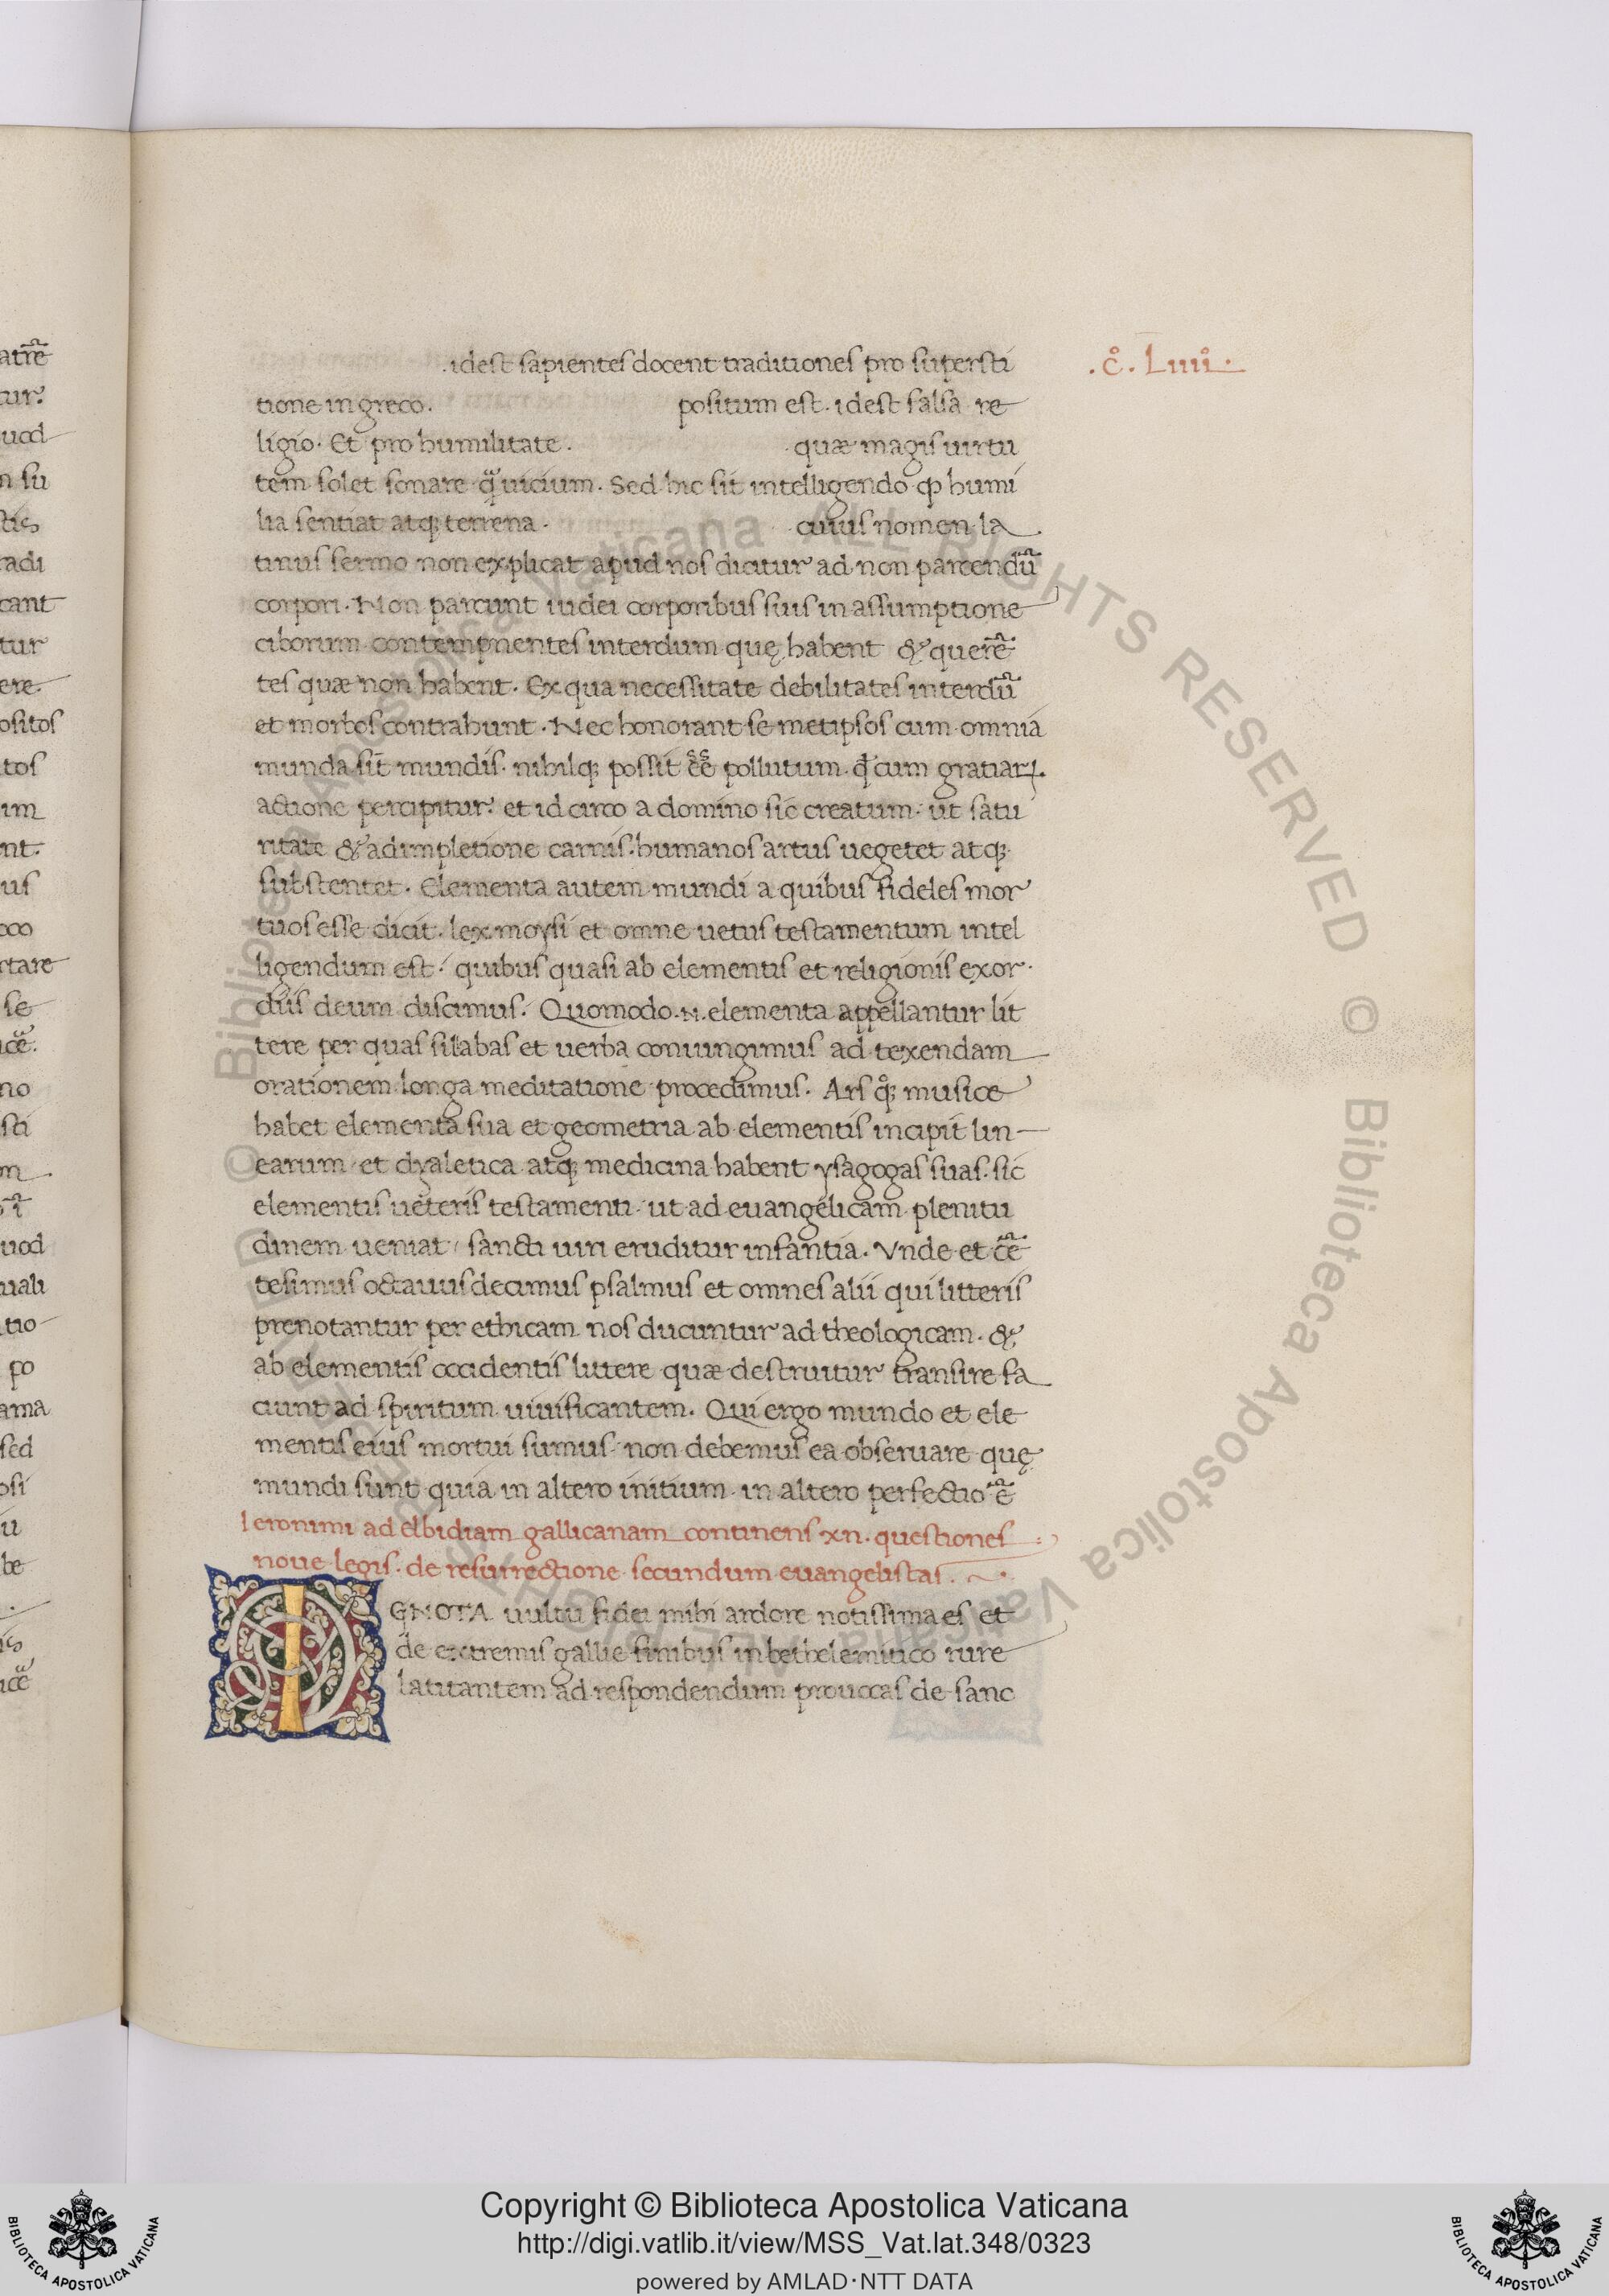 atre᷉
tur.
uod
n su
tis
radi
cant
tur
ere
ositos
tos
um
nt.
us
oco
rtare
se
no
sti
uod
uali
tio
po
ama
sed
osi
u
be
.idest sapientes docent traditiones pro supersti
.c̊. Liiii̊.
tione in greco. positum est. idest falsa re
ligio. Et pro humilitate. quæ magis uirtu
tem solet sonare q̃ uicium. Sed hic sit intelligendo ꝙ humi
lia sentiat atq; terrena. cuius nomen la
tinus sermo non explicat apud nos dicitur ad non parcendũ
corpori. Non parcunt iudei corporibus suis in assumptione
ciborum contempnentes interdum quę habent & querẽ
tes quæ non habent. Ex qua necessitate debilitates interdũ
et morbos contrahunt. Nec honorant se metipsos cum omnia
munda sīt mundis. nihilq; possit ẽẽ pollutum. qđ cum gratiaꝝ.
actione percipitur. et id circo a domino sic creatum. ut satu
ritate & adimpletione carnis. humanos artus uegetet atq;
substentet. Elementa autem mundi a quibus fideles mor
tuos esse dicit. lex moysi et omne uetus testamentum intel
ligendum est. quibus quasi ab elementis et religionis exor
diis deum discimus. Quomodo .N. elementa appellantur lit
tere per quas sillabas et uerba coniungimus ad texendam
orationem longa meditatione procedimus. Ars q̊; musice
habet elementa sua et geometria ab elementis incipit lin
earum et dyaletica atq; medicina habent ysagogas suas. sic
elementis ueteris testamenti ut ad euangelicam plenitu
dinem ueniat sancti uiri eruditur infantia. Vnde et cẽ
tesimus octauus decimus psalmus et omnes alii qui litteris
prenotantur per ethicam nos ducuntur ad theologicam. &
ab elementis occidentis littere quæ destruitur transire fa
ciunt ad spiritum uiuificantem. Qui ergo mundo et ele
mentis eius mortui sumus non debemus ea obseruare quę
mundi sunt quia in altero initium in altero perfectio ẽ
Ieronimi ad elbidiam gallicanam continens xii. questiones
noue legis. de resurrectione secundum euangelistas.
IGNOTA uultu fidei mihi ardore notissima es et
de extremis gallie finibus in bethelemitico rure
latitantem ad respondendum prouocas de sanc
© Biblioteca Apostolica Vaticana ALL RIGHTS RESERVED © Biblioteca Apostolica Vaticana ALL RIGHTS RESERVED
Copyright © Biblioteca Apostolica Vaticana
http://digi.vatlib.it/view/MSS_Vat.lat.348/0323
powered by AMLAD·NTT DATA
BIBLIOTECA APOSTOLICA VATICANA
BIBLIOTECA APOSTOLICA VATICANA